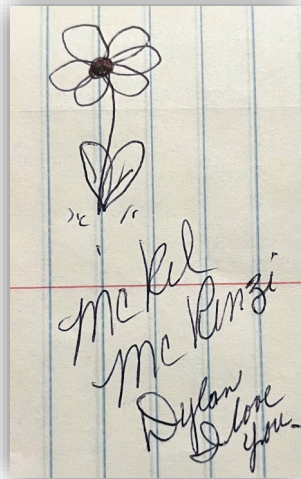 McKel
McKenzi
Dylan
I love
you-